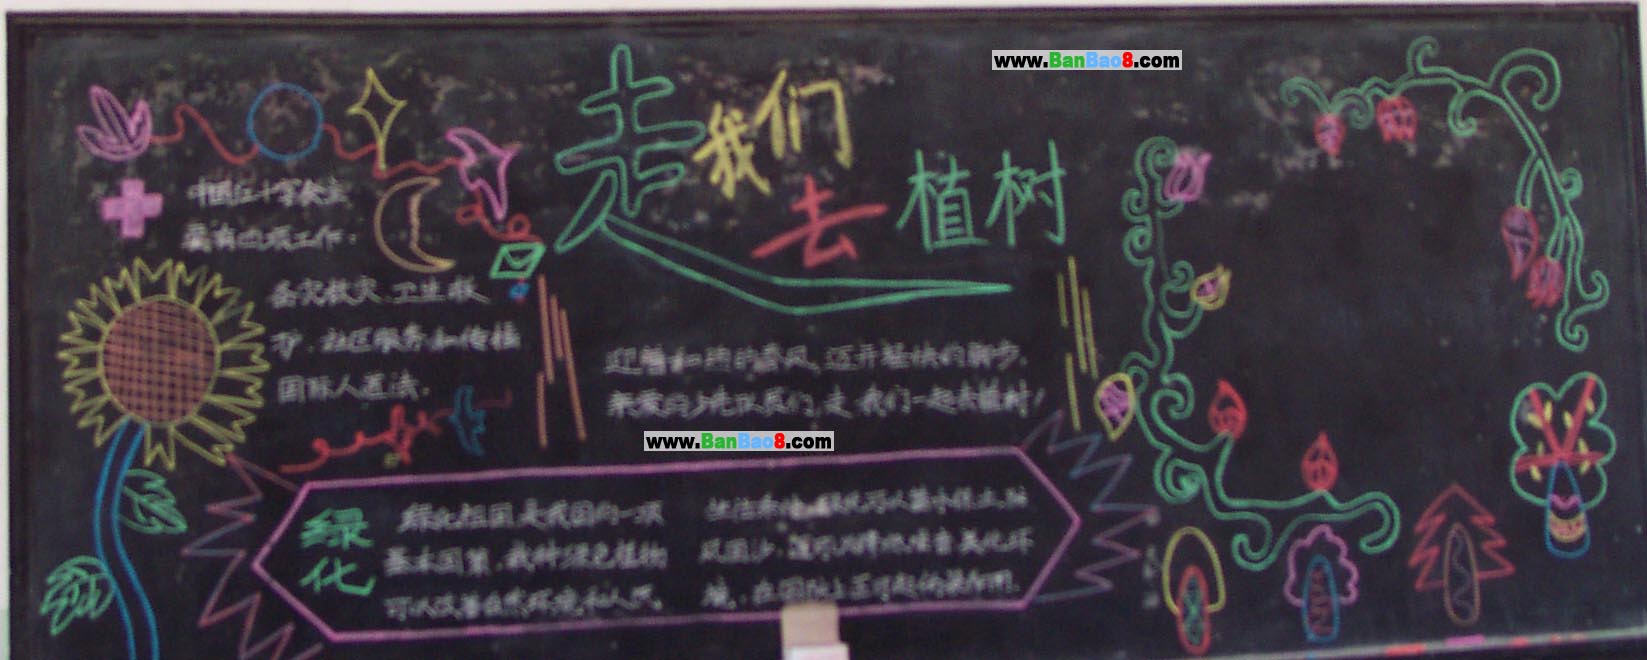 www.BanBao8.com
走我们去植树
中国红十字会主
要有四项工作.
备灾救灾、卫生救
护、社区服务和传播
国际人道法.
迎着和煦的春风,迈开轻快的脚步,
亲爱的少先队员们,走,我们一起去植树!
www.BanBao8.com
绿化
绿化祖国是我国的一项
基本国策,我种绿色植物
可以改善自然环境和人民
防风固沙
美化环
境,在国际上